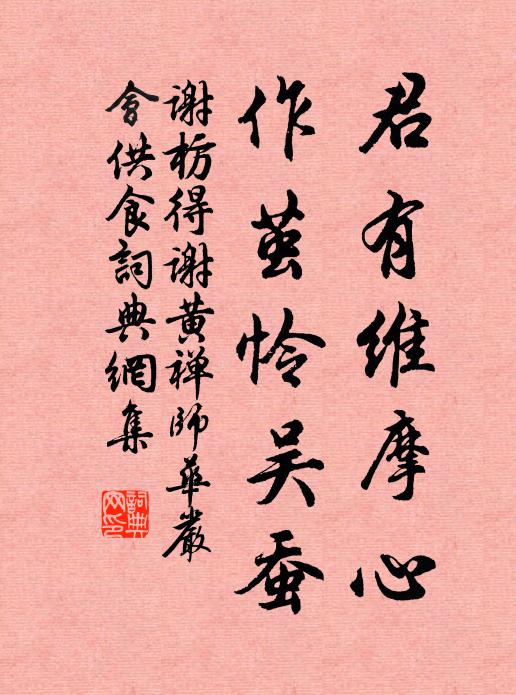 君有维摩心
作茧怜吴蚕
谢枋得谢黄禅师华严
会供食词典網集
詞典
网印